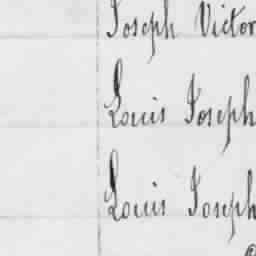 Joseph Victor
Louis Joseph
Louis Joseph